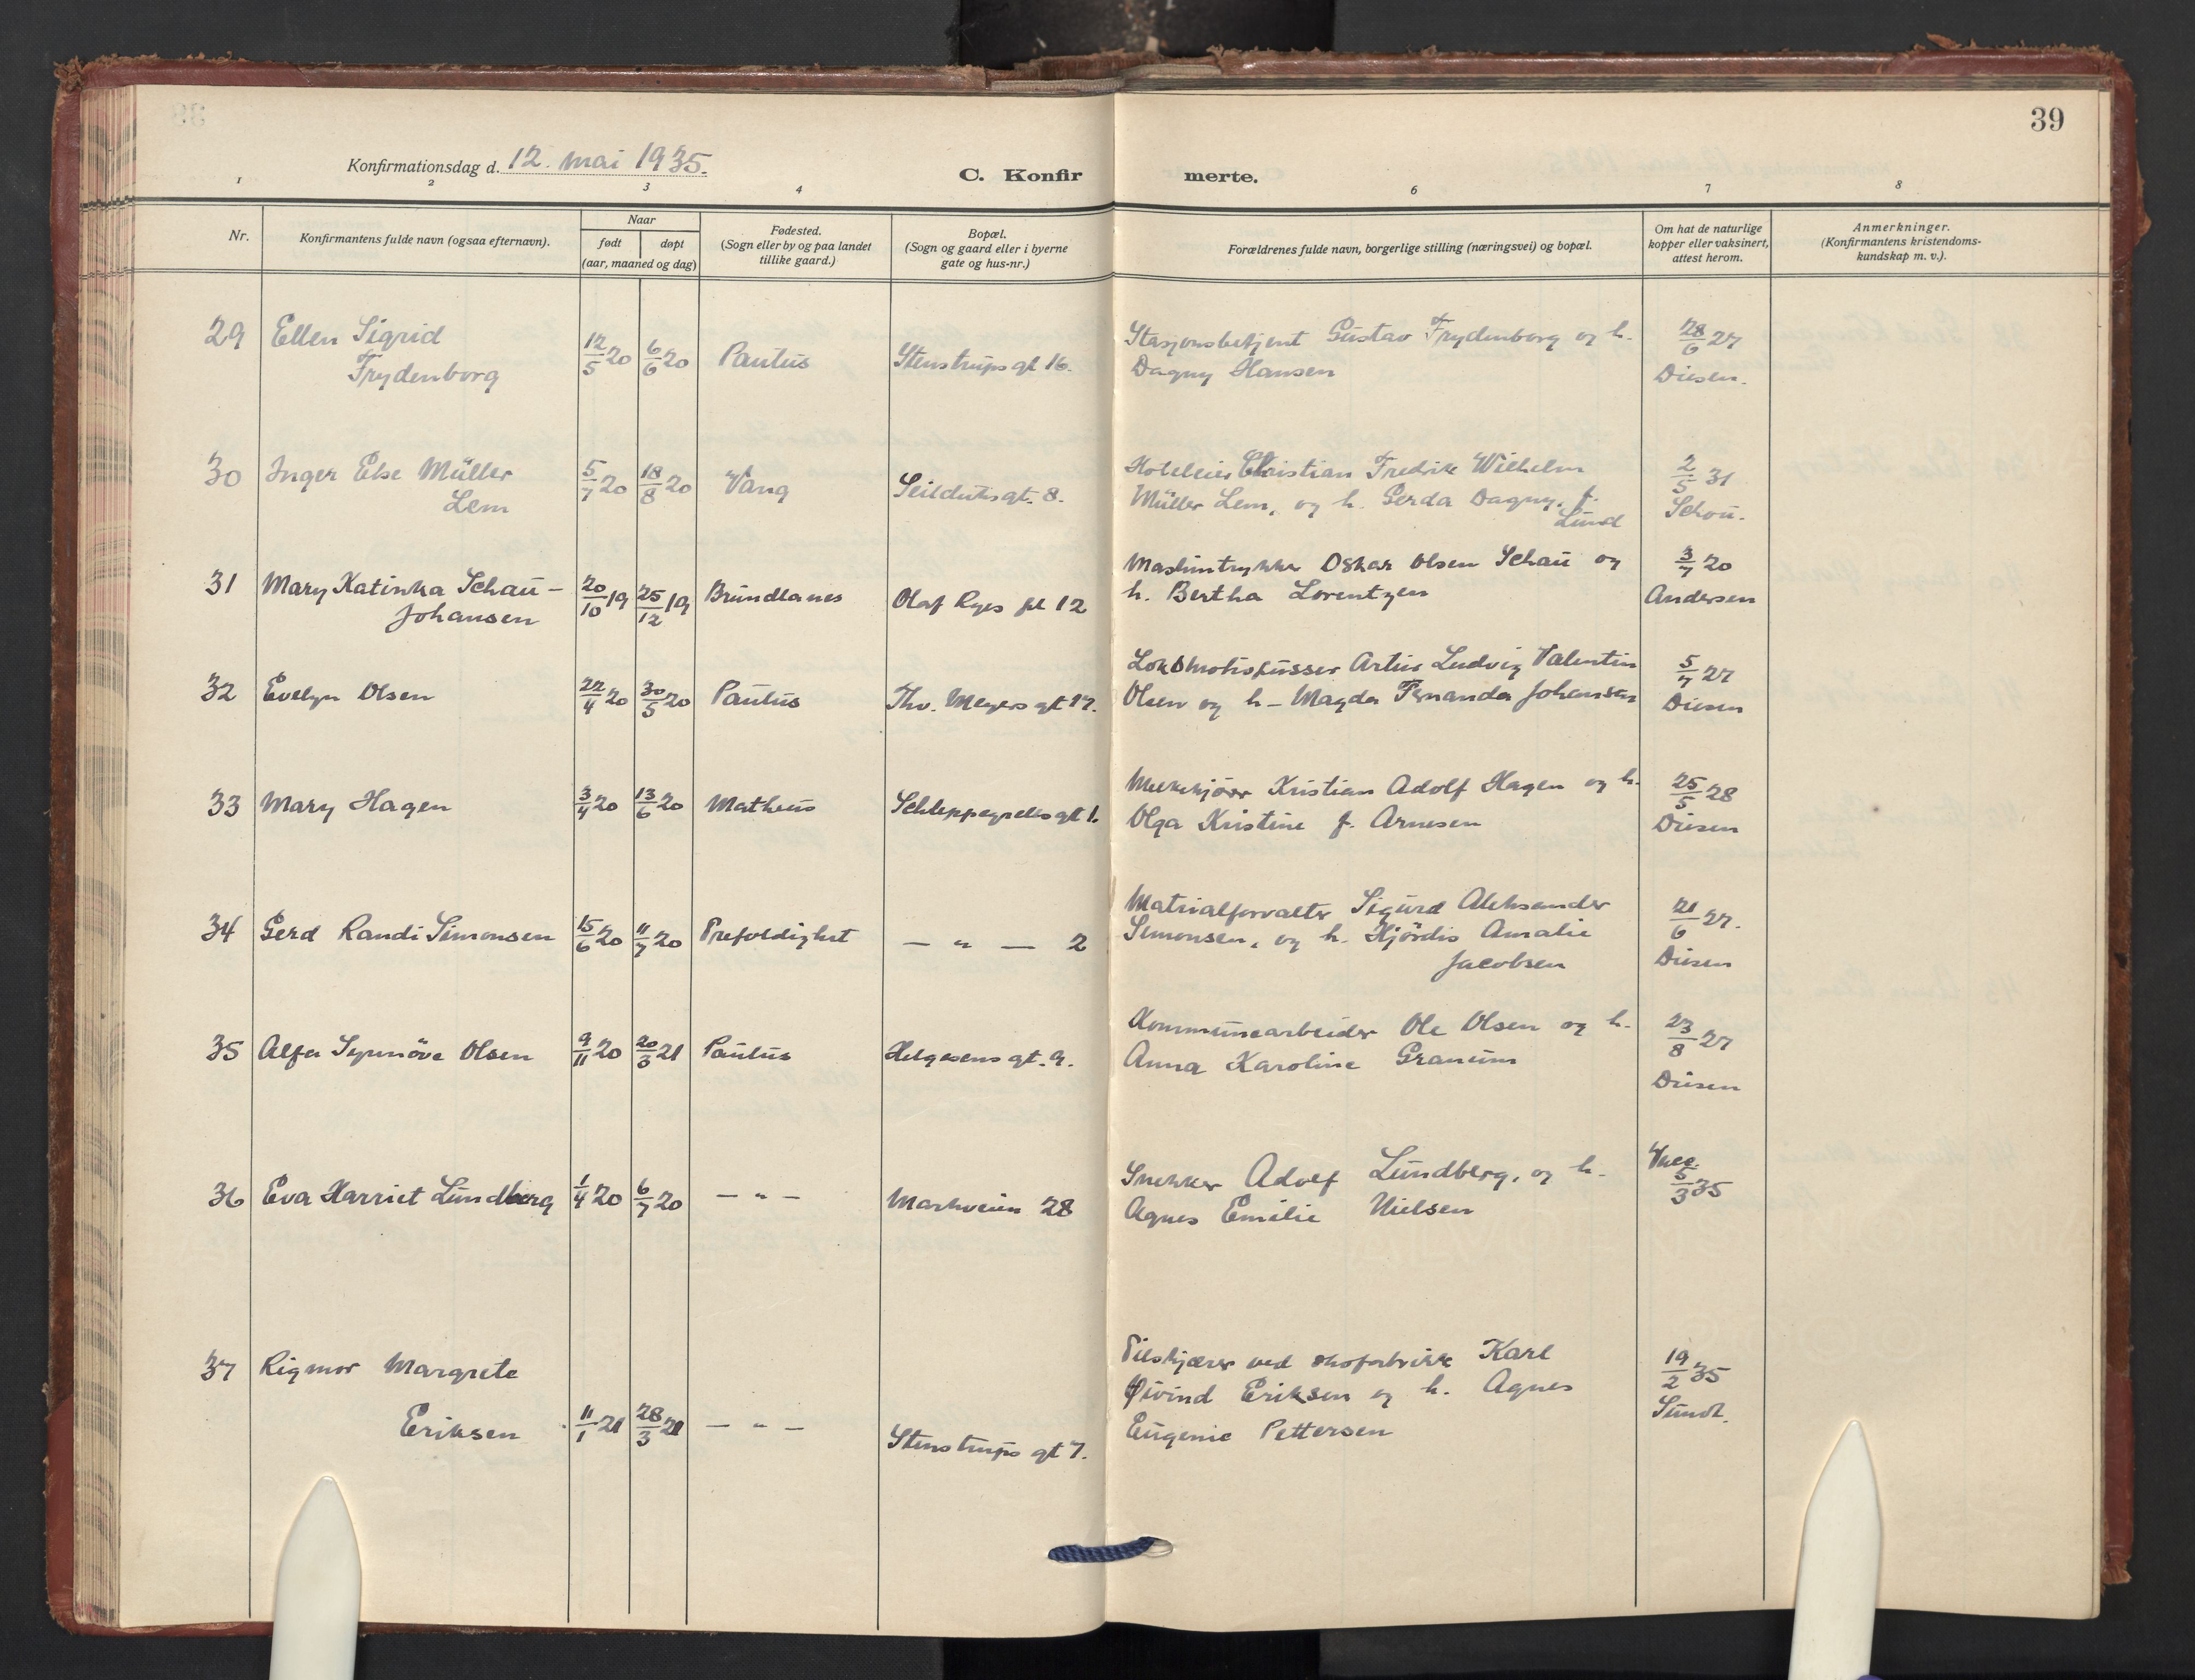 39
Konfirmationsdag d. 12. mai 1935.
C. Konfirmerte.
1 2 3 4 6 7 8
Nr.
Konfirmantens fulde navn (ogsaa efternavn).
Naar
født døpt
(aar, maaned og dag)
Fødested.
(Sogn eller by og paa landet
tillike gaard.)
Bopæl.
(Sogn og gaard eller i byerne
gate og hus-nr.)
Forældrenes fulde navn, borgerlige stilling (næringsvei) og bopæl.
Om hat de naturlige
kopper eller vaksinert,
attest herom.
Anmerkninger.
(Konfirmantens kristendoms-
kundskap m. v.).
29 Ellen Sigrid
Frydenborg
12/5 20 6/6 20 Paulus Stenstrups gt 16.
Stasjonsbetjent Gustav Frydenborg og h.
Dagny Hansen
28/6 27
Diesen.
30 Inger Else Müller
Lem
5/7 20 18/8 20 Vang Seilduks gt. 8.
Hoteleier Christian Fredrik Wilhelm
Müller Lem, og h. Gerda Dagny, f.
Lund
2/5 31
Schou.
31 Mary Katinka Schau-
Johansen
20/10 19 25/12 19 Brunlanes Olaf Ryes pl 12
Maskintrykker Oskar Olsen Schau og
h. Bertha Lorentzen
3/7 20
Andersen
32 Evelyn Olsen
22/4 20 30/5 20 Paulus Thv. Meyers gt 17.
Lokomotivpusser Artur Ludvig Valentin
Olsen og h - Magda Fernanda Johansen
5/7 27
Diesen
33 Mary Hagen
3/4 20 13/6 20 Matheus Schleppegrells gt 1.
Melkekjører Kristian Adolf Hagen og h.
Olga Kristine f. Arnesen
25/5 28
Diesen
34 Gerd Randi Simonsen
15/6 20 11/7 20 Trefoldighet — " — 2
Matrialforvalter Sigurd Aleksander
Simonsen, og h. Hjördis Amalie
Jacobsen
21/6 27.
Diesen
35 Alfa Synnöve Olsen
9/11 20 20/3 21 Paulus Helgesens gt. 9.
Kommunearbeider Ole Olsen og h.
Anna Karoline Granum
23/8 27
Diesen
36 Eva Harriet Lundberg
1/4 20 6/7 20 — " — Markveien 28
Snekker Adolf Lundberg, og h.
Agnes Emilie Nielsen
Vacc.
5/3 35
37 Rigmor Margrete
Eriksen
11/1 21 28/3 21 — " — Stenstrups gt 7.
Tilskjærer ved skofabrikk Karl
Øivind Eriksen og h. Agnes
Eugenie Pettersen
19/2 35
Sundt.